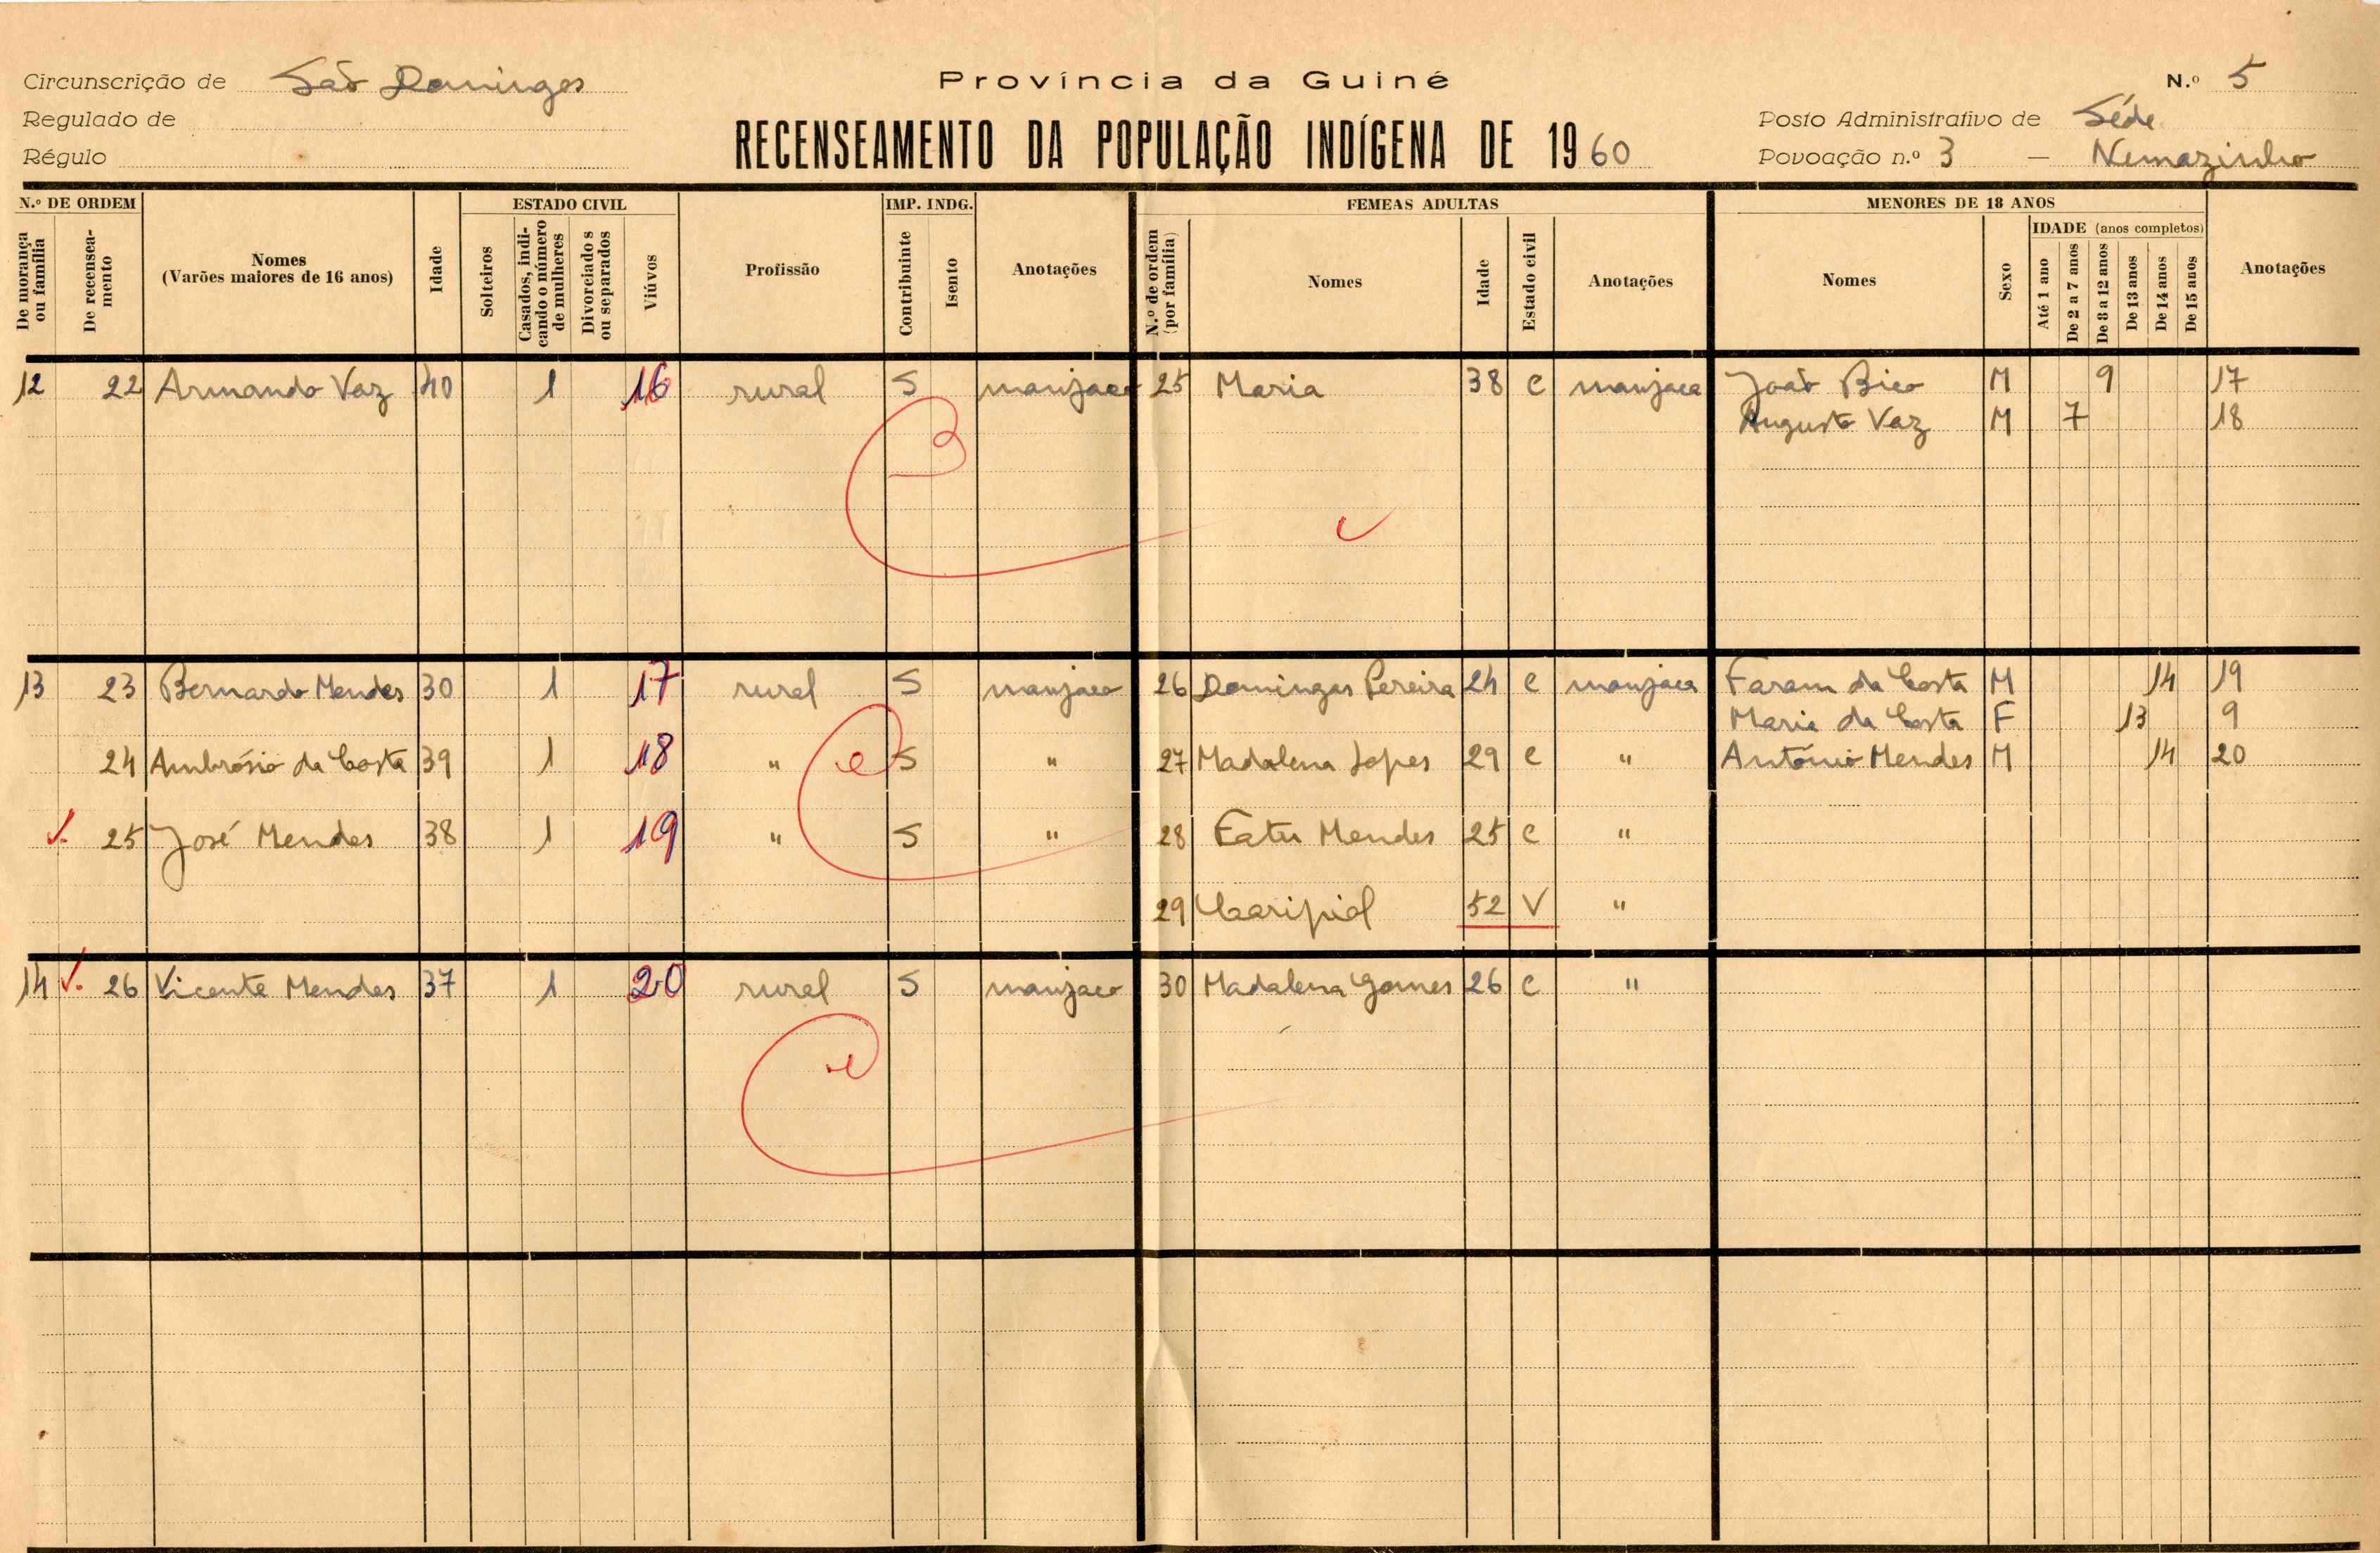 Circunscrição de São Domingos
Regulado de
Régulo
Província da Guiné
RECENSEAMENTO DA POPULAÇÃO INDÍGENA DE 1960
N.º 5
Posto Administrativo de Séde
Povoação n.º 3 — Nemazinho
N.º DE ORDEM
De morança ou família
De recenseamento
Nomes
(Varões maiores de 16 anos)
Idade
ESTADO CIVIL
Solteiros
Casados, indicando o número de mulheres
Divorciados ou separados
Viúvos
Profissão
IMP. INDG.
Contribuinte
Isento
Anotações
FEMEAS ADULTAS
N.º de ordem (por família)
Nomes
Idade
Estado civil
Anotações
MENORES DE 18 ANOS
Nomes
Sexo
IDADE (anos completos)
Até 1 ano
De 2 a 7 anos
De 8 a 12 anos
De 13 anos
De 14 anos
De 15 anos
Anotações
12 22 Armando Vaz 40 1 16 rural S manjaco 25 Maria 38 c manjaca João Bico M 9 17
Augusto Vaz M 7 18
13 23 Bernardo Mendes 30 1 17 rural S manjaco 26 Domingas Pereira 24 c manjaca Faram da Costa M 14 19
Maria da Costa F 13 9
24 Ambrósio da Costa 39 1 18 " S " 27 Madalena Lopes 29 c " António Mendes M 14 20
25 José Mendes 38 1 19 " S " 28 Fatu Mendes 25 c "
29 52 V "
14 26 Vicente Mendes 37 1 20 rural S manjaco 30 Madalena Gomes 26 c "